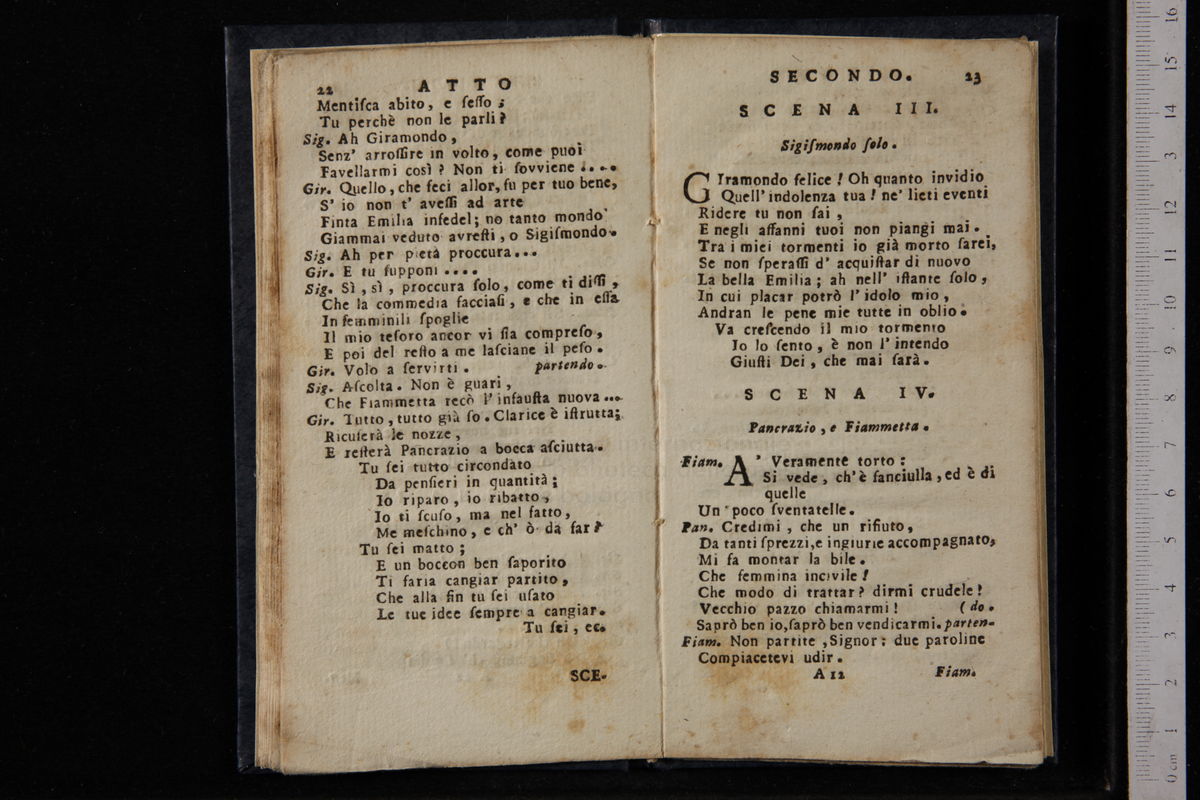 22 ATTO
Mentiſca abito, e ſeſſo ;
Tu perchè non le parli?
Sig. Ah Giramondo,
Senz' arroſſire in volto, come puoi
Favellarmi così ? Non ti ſovviene ....
Gir. Quello, che feci allor, fu per tuo bene,
S' io non t' aveſſi ad arte
Finta Emilia infedel; no tanto mondo
Giammai veduto avreſti, o Sigiſmondo.
Sig. Ah per pietà proccura...
Gir. E tu ſupponi ....
Sig. Sì, sì, proccura ſolo, come ti diſſi,
Che la commedia facciaſi, e che in eſſa
In femminili ſpoglie
Il mio teſoro ancor vi ſia compreſo,
E poi del reſto a me laſciane il peſo.
Gir. Volo a ſervirti. partendo.
Sig. Aſcolta. Non è guari,
Che Fiammetta recò l'infauſta nuova...
Gir. Tutto, tutto già ſo. Clarice è iſtrutta;
Ricuſerà le nozze,
E reſterà Pancrazio a bocca aſciutta.
Tu ſei tutto circondato
Da penſieri in quantità;
Io riparo, io ribatto,
Io ti ſcuſo, ma nel fatto,
Me meſchino, e ch' ò da far?
Tu ſei matto ;
E un boccon ben ſaporito
Ti faria cangiar partito,
Che alla fin tu ſei uſato
Le tue idee ſempre a cangiar.
Tu ſei, ec.
SCE-
SECONDO. 23
SCENA III.
Sigiſmondo ſolo.
GIramondo felice ! Oh quanto invidio
Quell' indolenza tua ! ne' lieti eventi
Ridere tu non ſai,
E negli affanni tuoi non piangi mai.
Tra i miei tormenti io già morto ſarei,
Se non ſperaſſi d' acquiſtar di nuovo
La bella Emilia; ah nell' iſtante ſolo,
In cui placar potrò l' idolo mio,
Andran le pene mie tutte in oblio.
Va creſcendo il mio tormento
Io lo ſento, è non l' intendo
Giuſti Dei, che mai ſarà.
SCENA IV.
Pancrazio, e Fiammetta.
Fiam. A' Veramente torto :
Si vede, ch'è fanciulla, ed è di
quelle
Un poco ſventatelle.
Pan. Credimi, che un rifiuto,
Da tanti ſprezzi, e ingiurie accompagnato,
Mi fa montar la bile.
Che femmina incivile !
Che modo di trattar? dirmi crudele !
Vecchio pazzo chiamarmi ! (do.
Saprò ben io, ſaprò ben vendicarmi. parten-
Fiam. Non partite, Signor: due paroline
Compiacetevi udir.
A 12 Fiam.
0 cm 1 2 3 4 5 6 7 8 9 10 11 12 13 14 15 16